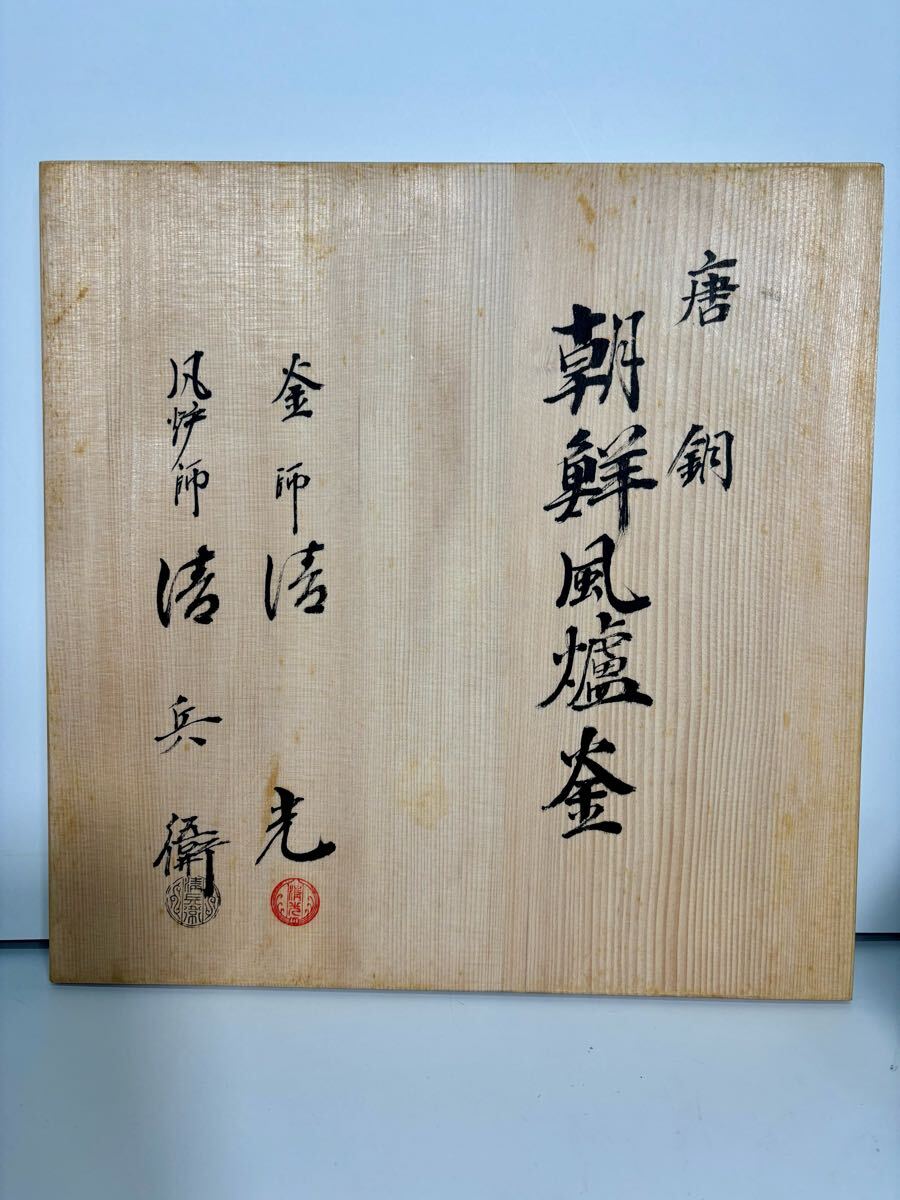 唐銅
朝鮮風爐釜
釜師清光
清光
風炉師清兵衛
清兵衛